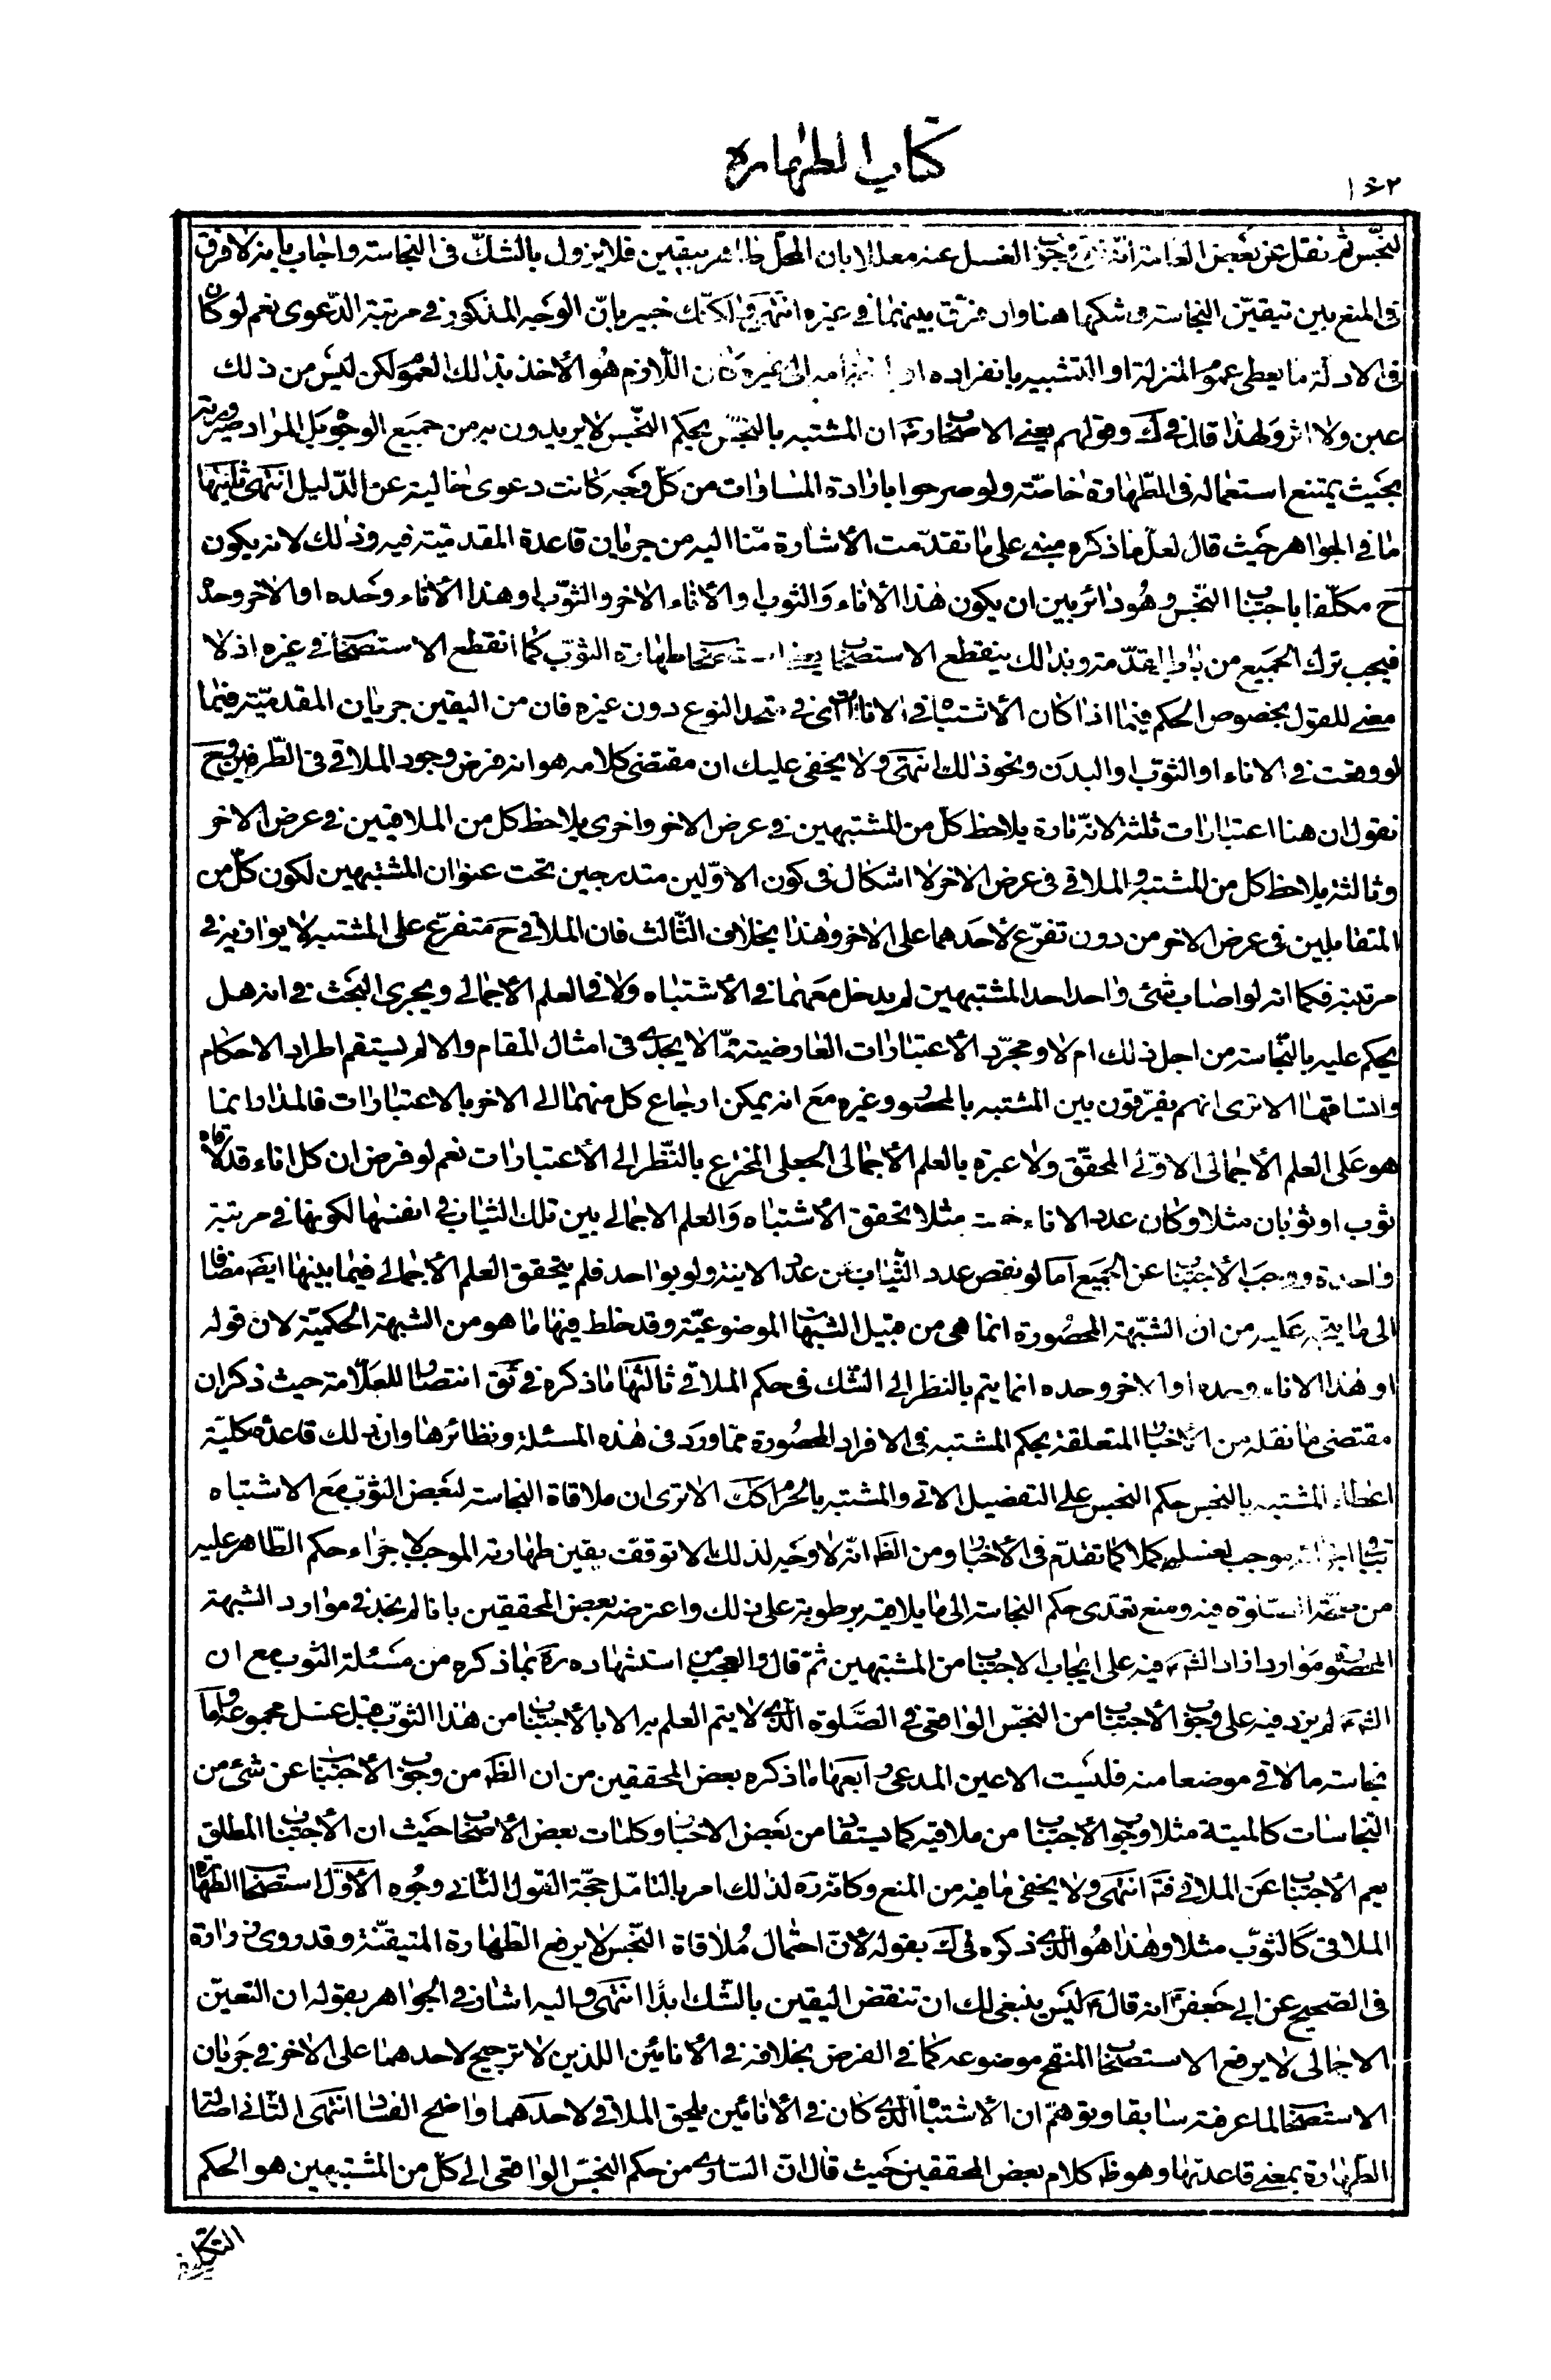 كتاب الطهارة
١٤٢
النجس ثم نقل عن بعض العامة وجوب الغسل عنه معللا بان المحل طاهر بيقين فلا يزول بالشك فى النجاسة واجاب بانه لا فرق
فى المنع بين تيقن النجاسة وشكها هنا وان فرق بينهما فى غيره انتهى ولكنك خبير بان الوجه المذكور فى مرتبة الدعوى نعم لو كان
فى الادلة ما يعطى عموم المنزلة او التشبيه بانفراده او الى غيره كان اللازم هو الأخذ بذلك العموم لكن ليس من ذلك
عين ولا اثر ولهذا قال فى ك وقولهم يعنى الاصحاب ره ان المشتبه بالنجس بحكم النجس لا يريدون به من جميع الوجوه بل المراد صيرورته
بحيث يمتنع استعماله فى الطهارة خاصة ولو صرحوا بارادة المساوات من كل وجه كانت دعوى خالية عن الدليل انتهى ثانيها
ما فى الجواهر حيث قال لعل ما ذكره مبنى على ما تقدمت الأشارة منا اليه من جريان قاعدة المقدمية فيه وذلك لانه يكون
ح مكلفا باجتناب النجس وهو دائر بين ان يكون هذا الأناء والثوب او الأناء الاخر والثوب او هذا الأناء وحده او الاخر وحده
فيجب ترك الجميع من باب المقدمة وبذلك ينقطع الاستصحاب يعنى استصحاب طهارة الثوب كما انقطع الاستصحاب فى غيره اذ لا
معنى للقول بخصوص الحكم فيما اذا كان الأشتباه فى الاناءات اى فى متحد النوع دون غيره فان من اليقين جريان المقدمية فيما
لو وقعت فى الاناء او الثوب او البدن ونحو ذلك انتهى ولا يخفى عليك ان مقتضى كلامه هو انه فرض وجود الملاقى فى الطرفين وح
نقول ان هنا اعتبارات ثلثة لانه تارة يلاحظ كل من المشتبهين فى عرض الاخر واخرى يلاحظ كل من الملاقيين فى عرض الاخر
وثالثة يلاحظ كل من المشتبه والملاقى فى عرض الاخر لا اشكال فى كون الاولين مندرجين تحت عنوان المشتبهين لكون كل من
المتقابلين فى عرض الاخر من دون تفرع لأحدهما على الاخر وهذا بخلاف الثالث فان الملاقى ح متفرع على المشتبه لا يوازيه فى
مرتبة فكما انه لو اصاب شئ واحد احد المشتبهين لم يدخل معهما فى الأشتباه ولا فى العلم الأجمالى ويجرى البحث فى انه هل
يحكم عليه بالنجاسة من اجل ذلك ام لا ومجرد الأعتبارات العارضية مما لا يجدى فى امثال المقام والا لم يستقم اطراد الاحكام
واتساقها الا ترى انهم يفرقون بين المشتبه بالمحصور وغيره مع انه يمكن ارجاع كل منهما الى الاخر بالاعتبارات فالمدار انما
هو على العلم الأجمالى الاولى المحقق ولا عبرة بالعلم الأجمالى الجعلى المخترع بالنظر الى الأعتبارات نعم لو فرض ان كل اناء قد لاقاه
ثوب او ثوبان مثلا وكان عدد الاناء مثلا تحقق الأشتباه والعلم الاجمالى بين تلك الثياب فى انفسها لكونها فى مرتبة
واحدة ووجب الأجتناب عن الجميع اما لو نقص عدد الثياب عن عدد الانية ولو بواحد فلم يتحقق العلم الأجمالى فيما بينها ايضا مضافا
الى ما يتجه عليه من ان الشبهة المحصورة انما هى من قبيل الشبهات الموضوعية وقد خلط فيها ما هو من الشبهة الحكمية لان قوله
او هذا الاناء وحده او الاخر وحده انما يتم بالنظر الى الشك فى حكم الملاقى ثالثها ما ذكره فى ئق انتصارا للعلامة حيث ذكر ان
مقتضى ما نقله من الأخبار المتعلقة بحكم المشتبه فى الافراد المحصورة مما ورد فى هذه المسئلة ونظائرها وان ذلك قاعدة كلية
اعطاء المشتبه بالنجس حكم النجس على التفصيل الاتى والمشتبه بالحرام كك الا ترى ان ملاقاة النجاسة لبعض الثوب مع الاشتباه
موجب لغسله كملا كما تقدم فى الأخبار ومن الظ انه لا وجه لذلك الا توقف يقين طهارته الموجب لاجراء حكم الطاهر عليه
من الصلوة فيه ومنع تعدى حكم النجاسة الى ما يلاقيه برطوبة على ذلك واعترضه بعض المحققين بانا لم نجد فى موارد الشبهة
المحصورة موارد ازاد فيه على ايجاب الاجتناب من المشتبهين ثم قال والعجب من استشهاده ره بما ذكره من مسئلة الثوب مع ان
لم يزد فيه على وجوب الأجتناب من النجس الواقعى فى الصلوة الذى لا يتم العلم به الا بالأجتناب من هذا الثوب قبل غسل مجموعه واما
نجاسة ما لاقى موضعا منه فليست الا عين المدعى رابعها ما ذكره بعض المحققين من ان الظ من وجوب الأجتناب عن شئ من
النجاسات كالميتة مثلا وجوب الأجتناب من ملاقيه كما يستفاد من بعض الاخبار وكلمات بعض الأصحاب حيث ان الأجتناب المطلق
يعم الأجتناب عن الملاقى فت انتهى ولا يخفى ما فيه من المنع وكانه ره لذلك امر بالتامل حجة القول الثانى وجوه الأول استصحاب الطهارة
الملاقى كالثوب مثلا وهذا هو الذى ذكره فى ك بقوله لأن احتمال ملاقاة النجس لا يرفع الطهارة المتيقنة وقد روى زرارة
فى الصحيح عن ابى جعفر انه قال ليس ينبغى لك ان تنقض اليقين بالشك ابدا انتهى واليه اشار فى الجواهر بقوله ان التعين
الاجمالى لا يرفع الاستصحاب المنقح موضوعه كما فى الفرض بخلافه فى الأنائين اللذين لا ترجيح لاحدهما على الاخر فى جريان
الاستصحاب لما عرفته سابقا وتوهم ان الأشتباه الذى كان فى الأنائين يلحق الملاقى لاحدهما واضح الفساد انتهى الثانى اصالة
الطهارة بمعنى قاعدتها وهو ظ كلام بعض المحققين حيث قال ان السارى من حكم النجس الواقعى الى كل من المشتبهين هو الحكم